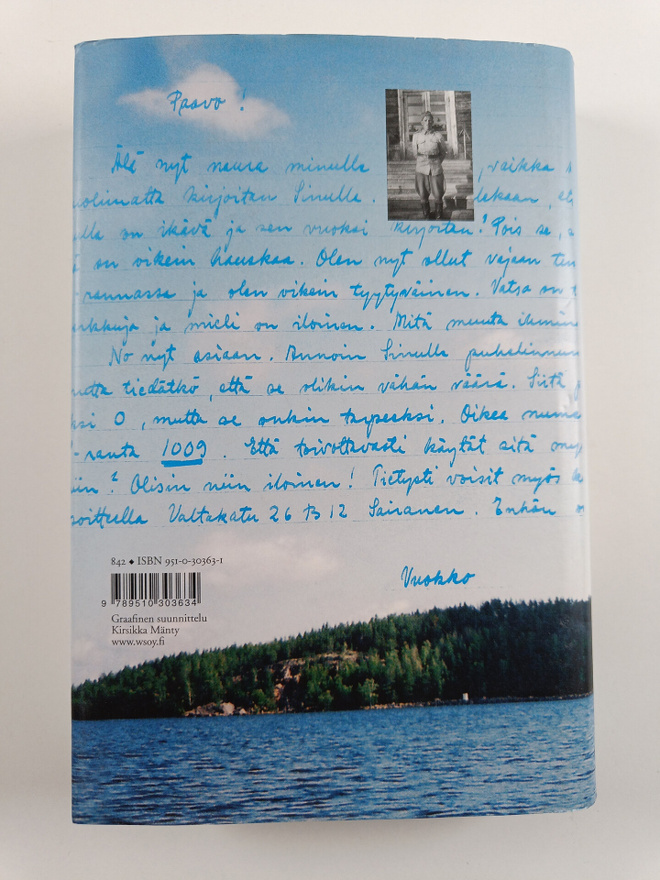 Paavo!
Älä nyt naura minulla , vaikka
kirjoitan Sinulle.
on ikävä ja sen vuoksi kirjoitan! Pois se,
on oikein hauskaa. Olen nyt ollut vajaan
rannassa ja olen oikein tyytyväinen. Vatsa on
ja mieli on iloinen. Mitä muuta
No nyt asiaan. Annoin Sinulle
tiedätkö, että se olikin vähän väärä. Siitä
0, mutta se onkin tarpeeksi. Oikea
ranta 1009. Että toivottavasti käytät sitä
? Olisin niin iloinen! Tietysti voisit myös
Valtakatu 26 B 12 . Enhän
Vuokko
842 ◆ ISBN 951-0-30363-1
9 789510 303634
Graafinen suunnittelu
Kirsikka Mänty
www.wsoy.fi